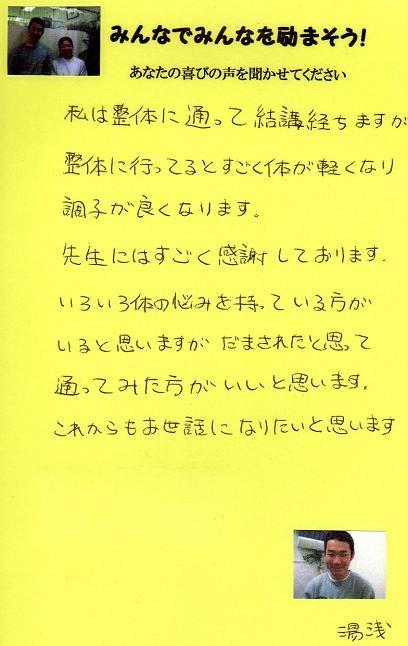 みんなでみんなを励まそう!
あなたの喜びの声を聞かせてください
私は整体に通って結講経ちますが
整体に行ってるとすごく体が軽くなり
調子が良くなります。
先生にはすごく感謝しております.
いろいろ体の悩みを持っている方が
いると思いますが だまされたと思って
通ってみた方がいいと思います。
これからもお世話になりたいと思います
湯浅